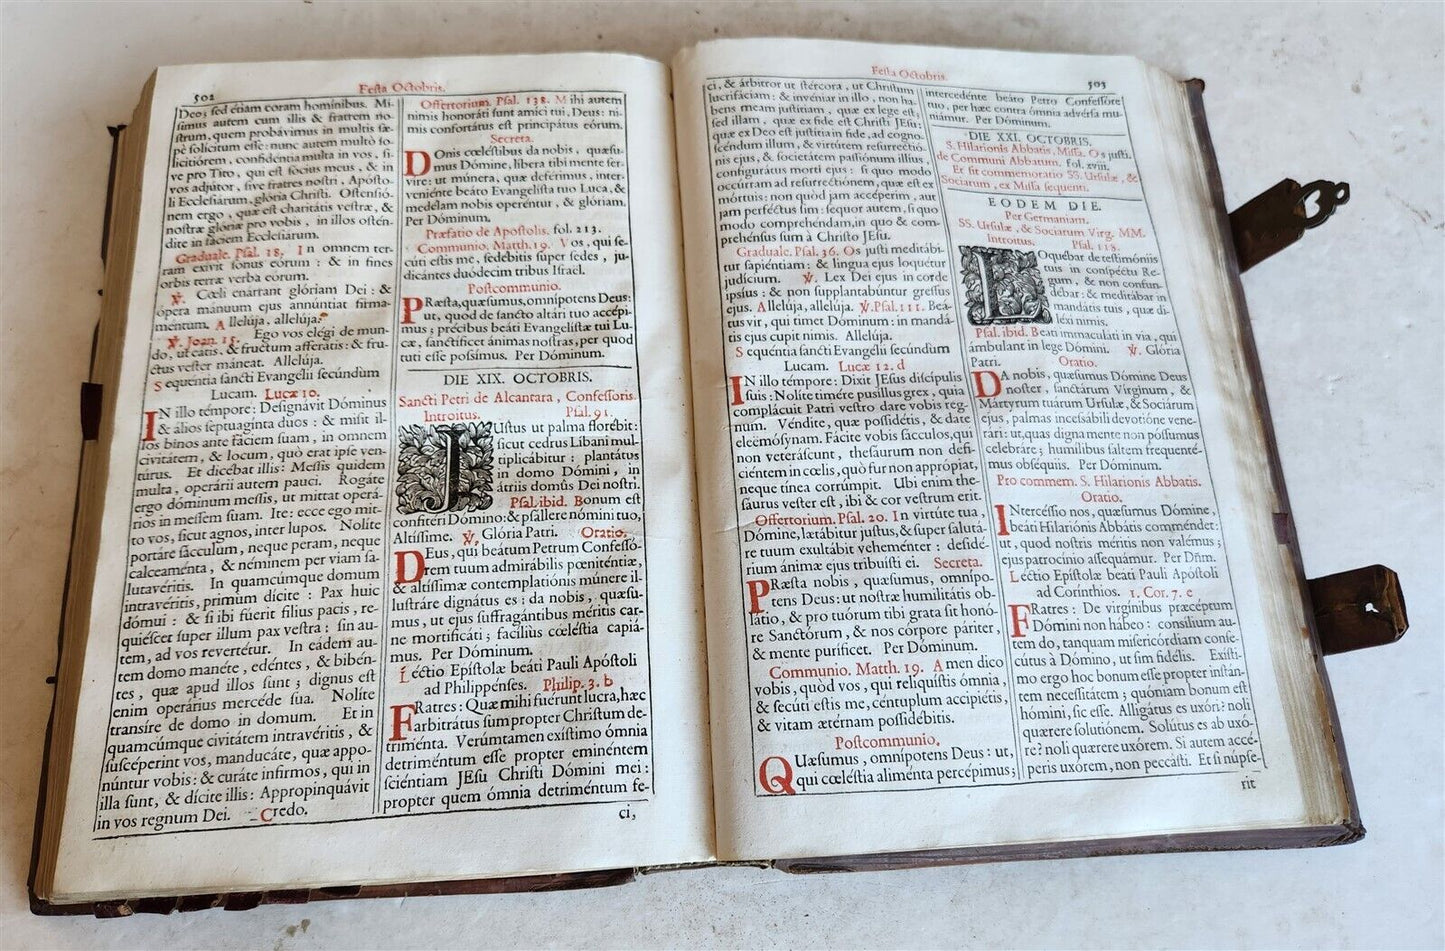 502
Festa Octobris.
Deo; sed étiam coram hominibus. Mi-
simus autem cum illis & fratrem no-
strum, quem probávimus in multis sæ-
pè solícitum esse: nunc autem multò so-
licitiórem, confidéntia multa in vos, si-
ve pro Tito, qui est sócius meus, & in
vos adjútor, sive fratres nostri, Apósto-
li Ecclesiárum, glória Christi. Ostensió-
nem ergo, quæ est charitátis vestræ, &
nostræ glóriæ pro vobis, in illos ostén-
dite in fáciem Ecclesiárum.
Graduale. Psal. 18. In omnem ter-
ram exívit sonus eórum: & in fines
orbis terræ verba eórum.
℣. Cœli enárrant glóriam Dei: &
ópera mánuum ejus annúntiat firma-
mentum. Allelúja, allelúja.
℣. Joan. 15. Ego vos elégi de mun-
do, ut eátis, & fructum afferátis: & fru-
ctus vester máneat. Allelúja.
Sequentia sancti Evangelii secúndùm
Lucam. Lucæ 10.
IN illo témpore: Designávit Dóminus
& álios septuagínta duos: & misit il-
los binos ante fáciem suam, in omnem
civitátem, & locum, quò erat ipse ven-
túrus. Et dicébat illis: Messis quidem
multa, operárii autem pauci. Rogáte
ergo dóminum messis, ut mittat operá-
rios in messem suam. Ite: ecce ego mit-
to vos, sicut agnos, inter lupos. Nolíte
portáre sácculum, neque peram, neque
calceaménta, & néminem per viam sa-
lutavéritis. In quamcúmque domum
intravéritis, primùm dícite: Pax huic
dómui: & si ibi fúerit filius pacis, re-
quiéscet super illum pax vestra: sin au-
tem, ad vos revertétur. In eádem au-
tem domo manéte, edéntes, & bibén-
tes, quæ apud illos sunt; dignus est
enim operárius mercéde sua. Nolíte
transíre de domo in domum. Et in
quamcúmque civitátem intravéritis, &
suscéperint vos, manducáte, quæ appo-
núntur vobis: & curáte infírmos, qui in
illa sunt, & dícite illis: Appropinquávit
in vos regnum Dei. Credo.
Offertorium. Psal. 138. Mihi autem
nimis honoráti sunt amíci tui, Deus: ni-
mis confortátus est principátus eórum.
Secreta.
DOnis cœléstibus da nobis, quæsu-
mus Dómine, líbera tibi mente ser-
víre: ut múnera, quæ deférimus, inter-
veniénte beáto Evangelísta tuo Luca, &
medélam nobis operéntur, & glóriam.
Per Dóminum.
Præfatio de Apostolis. fol. 213.
Communio. Matth. 19. Vos, qui se-
cúti estis me, sedébitis super sedes, ju-
dicántes duódecim tribus Israel.
Postcommunio.
PRæsta, quæsumus, omnípotens Deus:
ut, quod de sancto altári tuo accépi-
mus; précibus beáti Evangelístæ tui Lu-
cæ, sanctíficet ánimas nostras, per quod
tuti esse possímus. Per Dóminum.
DIE XIX. OCTOBRIS.
Sancti Petri de Alcantara, Confessoris.
Introitus. Psal. 91.
JUstus ut palma florébit:
sicut cedrus Líbani mul-
tiplicábitur: plantátus
in domo Dómini, in
átriis domûs Dei nostri.
Psal. ibid. Bonum est
confitéri Dómino: & psállere nómini tuo,
Altíssime. ℣. Glória Patri. Oratio.
DEus, qui beátum Petrum Confessó-
rem tuum admirábilis pœniténtiæ,
& altíssimæ contemplatiónis múnere il-
lustráre dignátus es: da nobis, quæsu-
mus, ut ejus suffragántibus méritis car-
ne mortificáti; faciliùs cœléstia capiá-
mus. Per Dóminum.
Léctio Epístolæ beáti Pauli Apóstoli
ad Philippénses. Philip. 3. b
FRatres: Quæ mihi fuérunt lucra, hæc
arbitrátus sum propter Christum de-
triménta. Verúmtamen exístimo ómnia
detriméntum esse propter eminéntem
sciéntiam JEsu Christi Dómini mei:
propter quem ómnia detriméntum fe-
ci,
Festa Octobris.
503
ci, & árbitror ut stércora, ut Christum
lucrifáciam: & invéniar in illo, non ha-
bens meam justítiam, quæ ex lege est;
sed illam, quæ ex fide est Christi JEsu:
quæ ex Deo est justítia in fide, ad cogno-
scéndum illum, & virtútem resurrectió-
nis ejus, & societátem passiónum illíus,
configurátus morti ejus: si quo modo
occúrram ad resurrectiónem, quæ est ex
mórtuis: non quòd jam accéperim, aut
jam perféctus sim: sequor autem, si quo
modo comprehéndam, in quo & com-
prehénsus sum à Christo JEsu.
Graduale. Psal. 36. Os justi meditábi-
tur sapiéntiam: & lingua ejus loquétur
judícium. ℣. Lex Dei ejus in corde
ipsíus: & non supplantabúntur gressus
ejus. Allelúja, allelúja. ℣. Psal. 111. Beá-
tus vir, qui timet Dóminum: in mandá-
tis ejus cupit nimis. Allelúja.
Sequentia sancti Evangelii secúndùm
Lucam. Lucæ 12. d
IN illo témpore: Dixit JEsus discípulis
suis: Nolíte timére pusíllus grex, quia
complácuit Patri vestro dare vobis reg-
num. Véndite, quæ possidétis, & date
eleemósynam. Fácite vobis sácculos, qui
non veteráscunt, thesáurum non defi-
ciéntem in cœlis, quò fur non apprópiat,
neque tínea corrúmpit. Ubi enim the-
sáurus vester est, ibi & cor vestrum erit.
Offertorium. Psal. 20. In virtúte tua,
Dómine, lætábitur justus, & super salutá-
re tuum exultábit veheménter: desidé-
rium ánimæ ejus tribuísti ei. Secreta.
PRæsta nobis, quæsumus, omnípo-
tens Deus: ut nostræ humilitátis ob-
látio, & pro tuórum tibi grata sit honó-
re Sanctórum, & nos córpore páriter,
& mente puríficet. Per Dóminum.
Communio. Matth. 19. Amen dico
vobis, quòd vos, qui reliquístis ómnia,
& secúti estis me, céntuplum accipiétis,
& vitam ætérnam possidébitis.
Postcommunio.
QUæsumus, omnípotens Deus: ut,
qui cœléstia aliménta percépimus;
intercedénte beáto Petro Confessóre
tuo, per hæc contra ómnia advérsa mu-
niámur. Per Dóminum.
DIE XXI. OCTOBRIS.
S. Hilarionis Abbatis, Missa. Os justi.
de Communi Abbatum. fol. xviii.
Et fit commemoratio SS. Ursulæ, &
Sociarum, ex Missa sequenti.
EODEM DIE.
Per Germaniam.
SS. Ursulæ, & Sociarum Virg. MM.
Introitus. Psal. 118.
LOquébar de testimóniis
tuis in conspéctu Re-
gum, & non confun-
débar: & meditábar in
mandátis tuis, quæ di-
léxi nimis.
Psal. ibid. Beáti immaculáti in via, qui
ámbulant in lege Dómini. ℣. Glória
Patri. Oratio.
DA nobis, quæsumus Dómine Deus
noster, sanctárum Vírginum, &
Mártyrum tuárum Ursulæ, & Sociárum
ejus, palmas incesábili devotióne vene-
rári: ut, quas digna mente non póssumus
celebráre; humílibus saltem frequenté-
mus obséquiis. Per Dóminum.
Pro commem. S. Hilarionis Abbatis.
Oratio.
INtercéssio nos, quæsumus Dómine,
beáti Hilariónis Abbátis comméndet:
ut, quod nostris méritis non valémus;
ejus patrocínio assequámur. Per Dñm.
Léctio Epístolæ beáti Pauli Apóstoli
ad Corínthios. 1. Cor. 7. e
FRatres: De virgínibus præcéptum
Dómini non hábeo: consílium au-
tem do, tanquam misericórdiam conse-
cútus à Dómino, ut sim fidélis. Exísti-
mo ergo hoc bonum esse propter instán-
tem necessitátem; quóniam bonum est
hómini, sic esse. Alligátus es uxóri? noli
quærere solutiónem. Solútus es ab uxó-
re? noli quærere uxórem. Si autem accé-
peris uxórem, non peccásti. Et si núpse-
rit